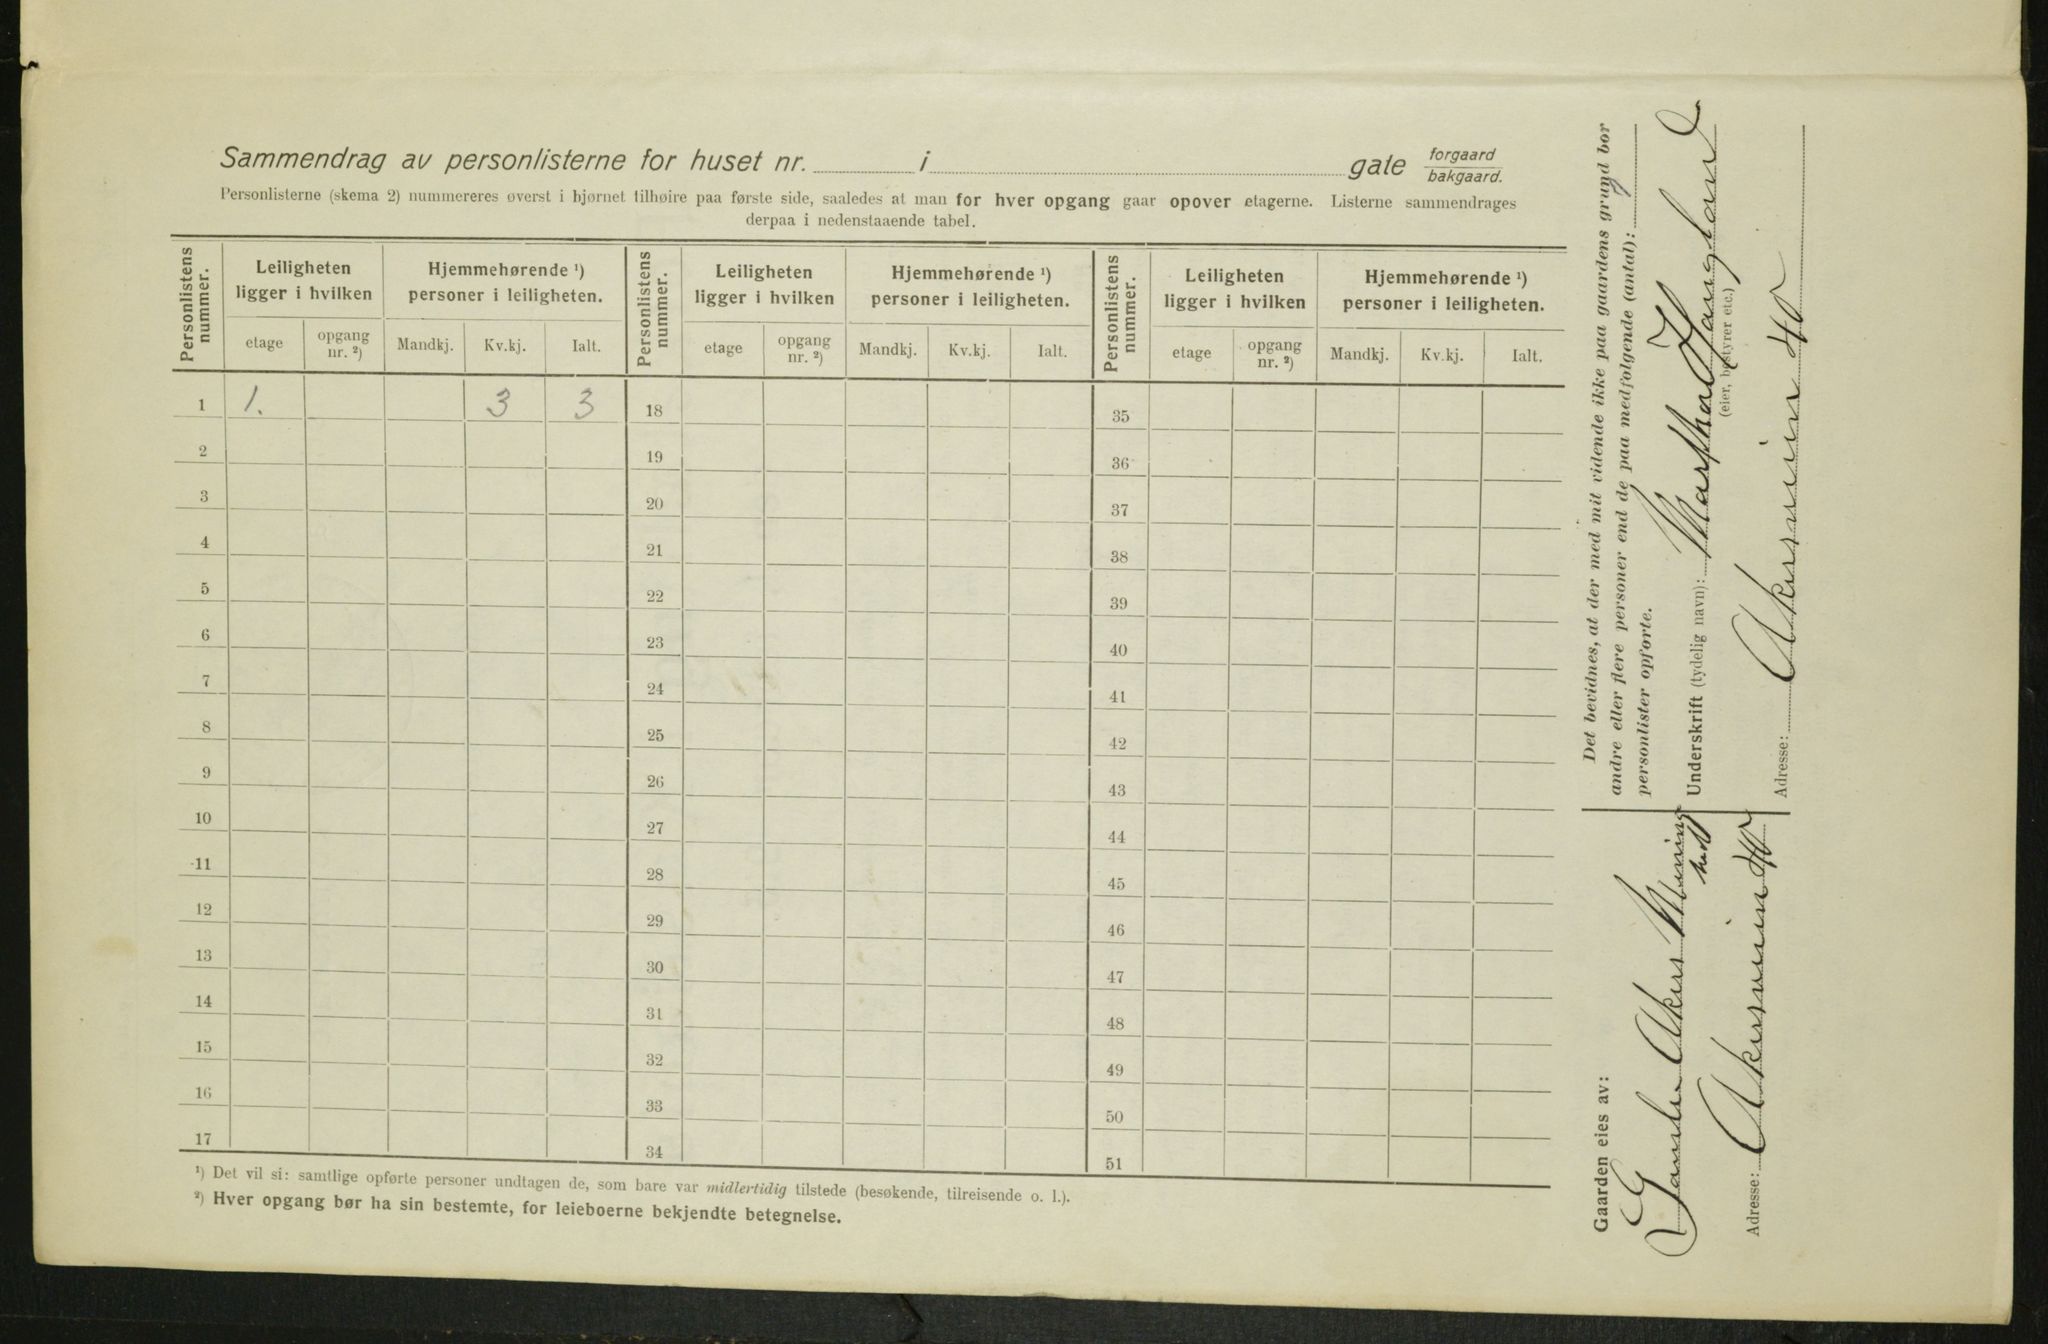 Sammendrag av personlisterne for huset nr. i gate forgaard
bakgaard.
Personlisterne (skema 2) nummereres øverst i hjørnet tilhøire paa første side, saaledes at man for hver opgang gaar opover etagerne. Listerne sammendrages
derpaa i nedenstaaende tabel.
Personlistens nummer. Leiligheten ligger i hvilken Hjemmehørende ¹) personer i leiligheten. Personlistens nummer. Leiligheten ligger i hvilken Hjemmehørende ¹) personer i leiligheten. Personlistens nummer. Leiligheten ligger i hvilken Hjemmehørende ¹) personer i leiligheten.
etage opgang nr. ²) Mandkj. Kv.kj. Ialt. etage opgang nr. ²) Mandkj. Kv.kj. Ialt. etage opgang nr. ²) Mandkj. Kv.kj. Ialt.
1 1. 3 3 18 35
2 19 36
3 20 37
4 21 38
5 22 39
6 23 40
7 24 41
8 25 42
9 26 43
10 27 44
11 28 45
12 29 46
13 30 47
14 31 48
15 32 49
16 33 50
17 34 51
¹) Det vil si: samtlige opførte personer undtagen de, som bare var midlertidig tilstede (besøkende, tilreisende o. l.).
²) Hver opgang bør ha sin bestemte, for leieboerne bekjendte betegnelse.
Det bevidnes, at der med mit vidende ikke paa gaardens grund bor
andre eller flere personer end de paa medfølgende (antal):
personlister opførte.
Underskrift (tydelig navn): Martha
(eier, bestyrer etc.)
Adresse: Akersveien 40
Gaarden eies av:
Gamle Akers Menighet
Adresse: Akersveien 40